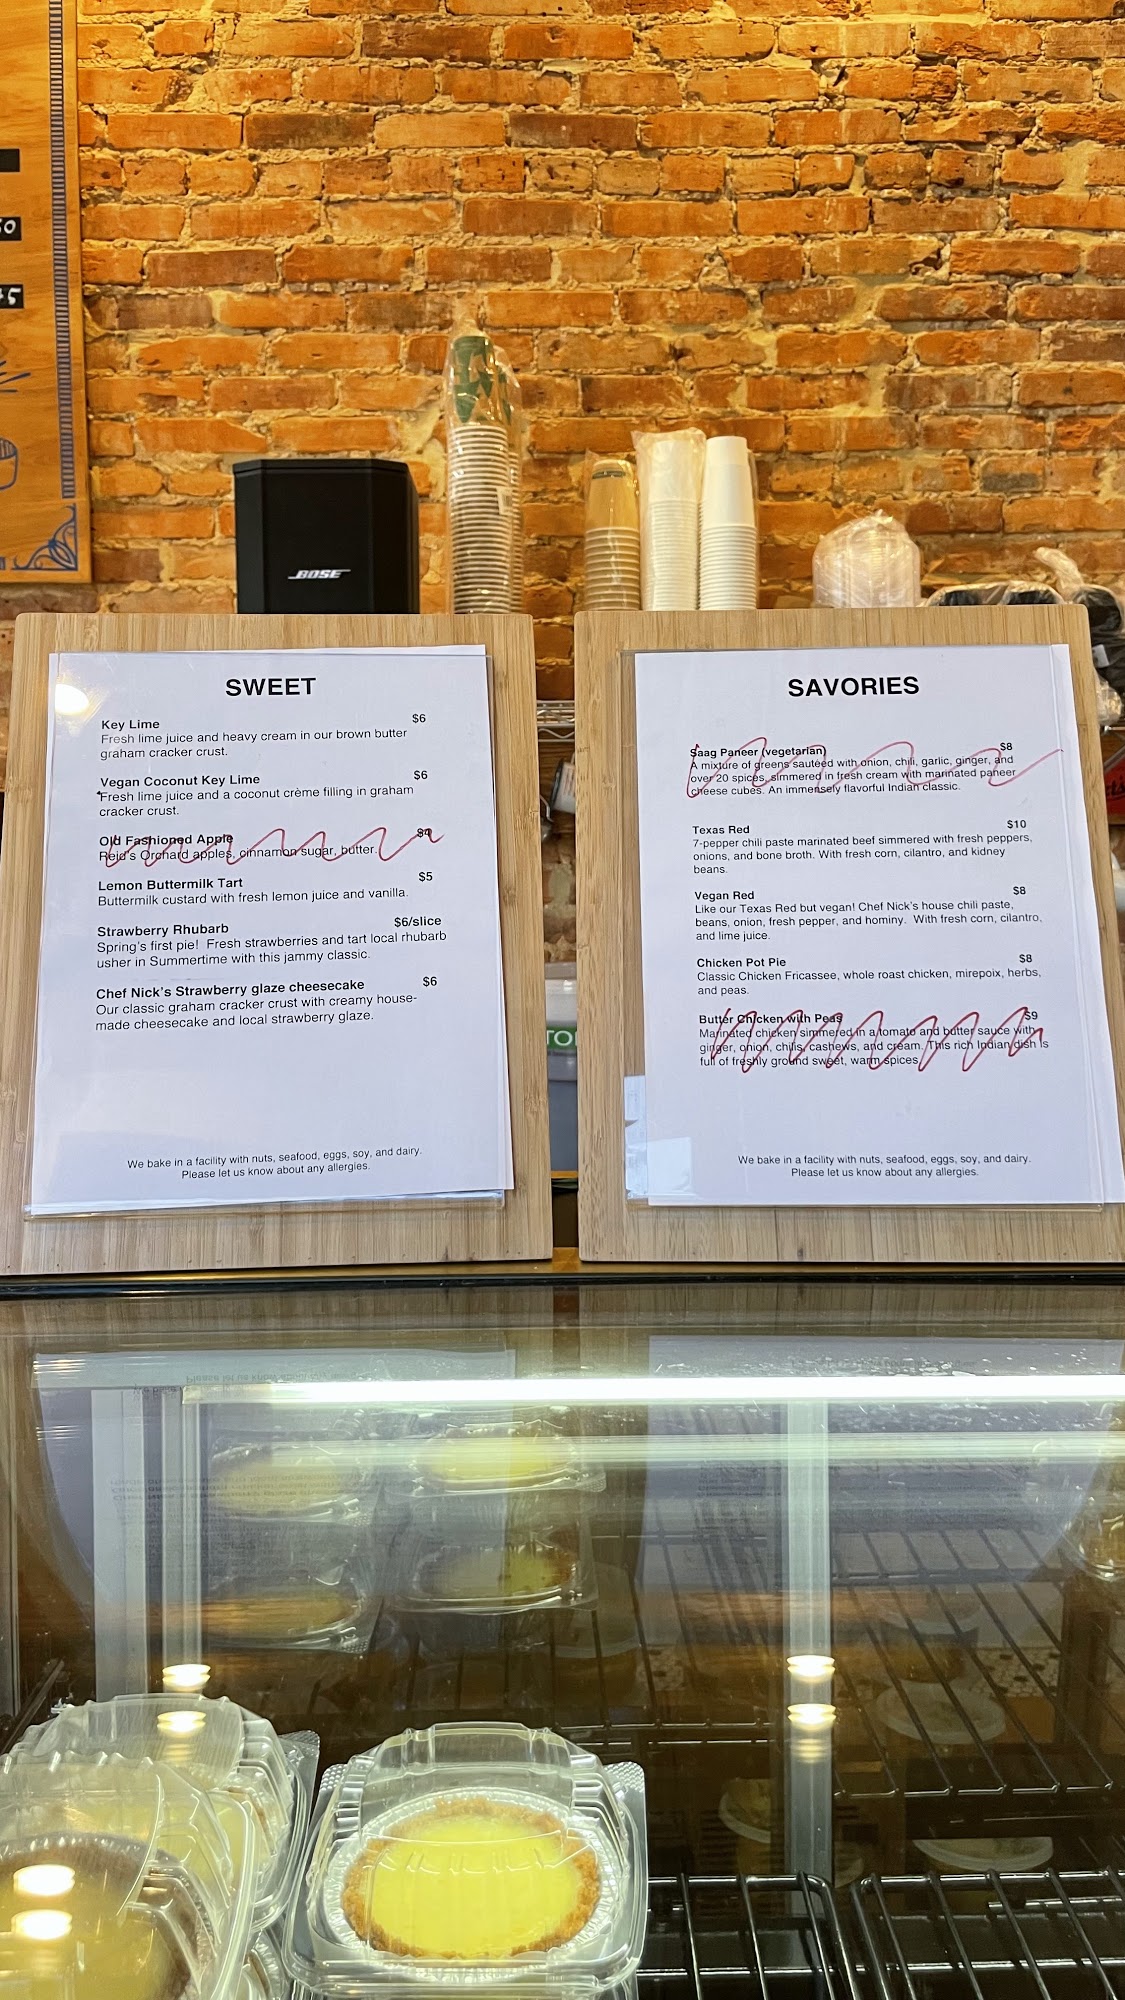 BOSE
SWEET
Key Lime $6
Fresh lime juice and heavy cream in our brown butter
graham cracker crust.
Vegan Coconut Key Lime $6
Fresh lime juice and a coconut crème filling in graham
cracker crust.
Old Fashioned Apple $4
Reid's Orchard apples, cinnamon sugar, butter.
Lemon Buttermilk Tart $5
Buttermilk custard with fresh lemon juice and vanilla.
Strawberry Rhubarb $6/slice
Spring's first pie! Fresh strawberries and tart local rhubarb
usher in Summertime with this jammy classic.
Chef Nick's Strawberry glaze cheesecake $6
Our classic graham cracker crust with creamy house-
made cheesecake and local strawberry glaze.
We bake in a facility with nuts, seafood, eggs, soy, and dairy.
Please let us know about any allergies.
SAVORIES
Saag Paneer (vegetarian) $8
A mixture of greens sautéed with onion, chili, garlic, ginger, and
over 20 spices, simmered in fresh cream with marinated paneer
cheese cubes. An immensely flavorful Indian classic.
Texas Red $10
7-pepper chili paste marinated beef simmered with fresh peppers,
onions, and bone broth. With fresh corn, cilantro, and kidney
beans.
Vegan Red $8
Like our Texas Red but vegan! Chef Nick's house chili paste,
beans, onion, fresh pepper, and hominy. With fresh corn, cilantro,
and lime juice.
Chicken Pot Pie $8
Classic Chicken Fricassee, whole roast chicken, mirepoix, herbs,
and peas.
Butter Chicken with Peas $9
Marinated chicken simmered in a tomato and butter sauce with
ginger, onion, chilis, cashews, and cream. This rich Indian dish is
full of freshly ground sweet, warm spices
We bake in a facility with nuts, seafood, eggs, soy, and dairy.
Please let us know about any allergies.